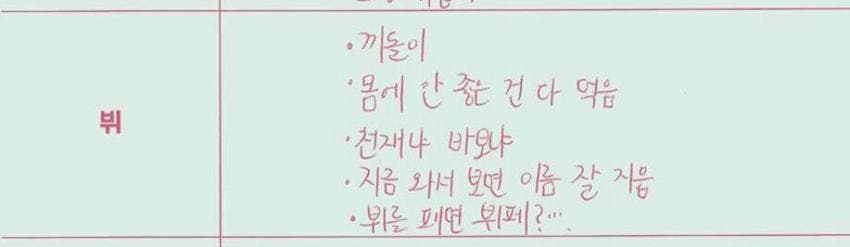 뷔
·끼돌이
·몸에 안 좋은 건 다 먹음
·천재냐 바보냐
·지금 와서 보면 이름 잘 지음
·뷔를 패면 뷔페?...